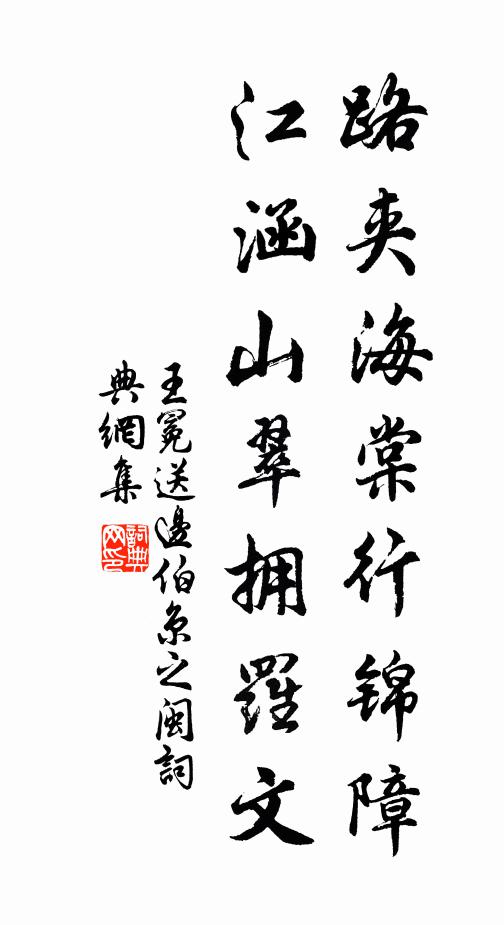 路夹海棠行锦障
江涵山翠拥羅文
王冕送邊伯京之閩詞
典網集
詞典
网印